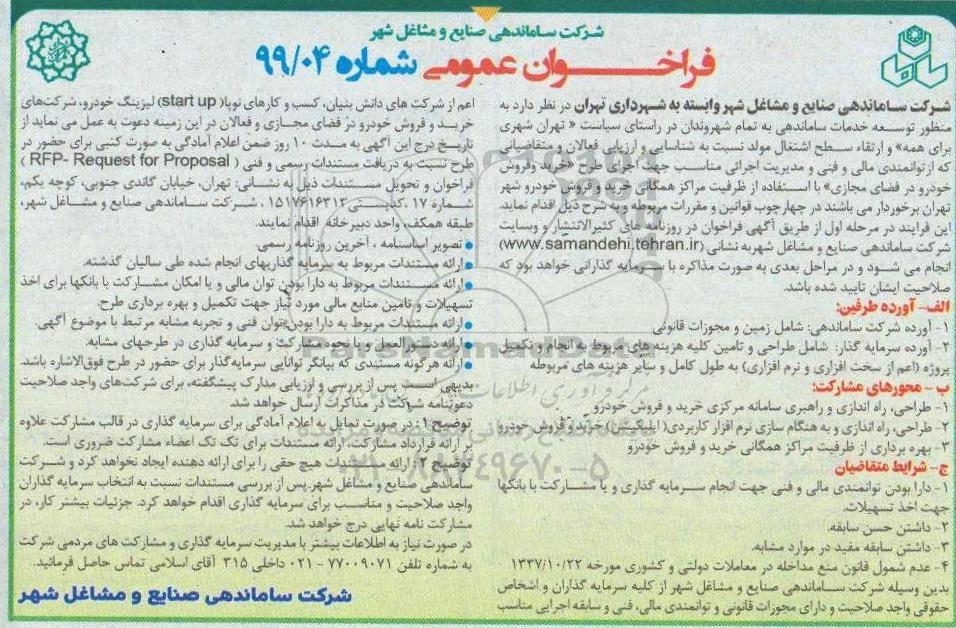 شرکت ساماندهی صنایع و مشاغل شهر
فراخـــوان عمومی شماره ۹۹/۰۴
شرکت ساماندهی صنایع و مشاغل شهر وابسته به شهرداری تهران در نظر دارد به
منظور توسعه خدمات ساماندهی به تمام شهروندان در راستای سیاست « تهران شهری
برای همه» و ارتقاء سطح اشتغال مولد نسبت به شناسایی و ارزیابی فعالان و متقاضیانی
که از توانمندی مالی و فنی و مدیریت اجرائی مناسب جهت اجرای طرح «خرید وفروش
خودرو در فضای مجازی» با استفاده از ظرفیت مراکز همگانی خرید و فروش خودرو شهر
تهران برخوردار می باشند در چهارچوب قوانین و مقررات مربوطه و به شرح ذیل اقدام نماید.
این فرایند در مرحله اول از طریق آگهی فراخوان در روزنامه های کثیرالانتشار و وبسایت
شرکت ساماندهی صنایع و مشاغل شهربه نشانی (www.samandehi.tehran.ir)
انجام می شود و در مراحل بعدی به صورت مذاکره با سرمایه گذارانی خواهد بود که
صلاحیت ایشان تایید شده باشد.
الف- آورده طرفین:
۱- آورده شرکت ساماندهی: شامل زمین و مجوزات قانونی
۲- آورده سرمایه گذار: شامل طراحی و تامین کلیه هزینه های مربوط به انجام و تکمیل
پروژه (اعم از سخت افزاری و نرم افزاری) به طول کامل و سایر هزینه های مربوطه
ب - محورهای مشارکت:
۱- طراحی، راه اندازی و راهبری سامانه مرکزی خرید و فروش خودرو
۲- طراحی، راه اندازی و به هنگام سازی نرم افزار کاربردی( اپلیکیشن) خرید و فروش خودرو
۳- بهره برداری از ظرفیت مراکز همگانی خرید و فروش خودرو
ج- شرایط متقاضیان
۱- دارا بودن توانمندی مالی و فنی جهت انجام سرمایه گذاری و یا مشارکت با بانکها
جهت اخذ تسهیلات.
۲- داشتن حسن سابقه.
۳- داشتن سابقه مفید در موارد مشابه.
۴- عدم شمول قانون منع مداخله در معاملات دولتی و کشوری مورخه ۱۳۳۷/۱۰/۲۲
بدین وسیله شرکت ساماندهی صنایع و مشاغل شهر از کلیه سرمایه گذاران و اشخاص
حقوقی واجد صلاحیت و دارای مجوزات قانونی و توانمندی مالی، فنی و سابقه اجرایی مناسب
اعم از شرکت های دانش بنیان، کسب و کارهای نوپا( start up) لیزینگ خودرو، شرکت‌های
خرید و فروش خودرو در فضای مجازی و فعالان در این زمینه دعوت به عمل می نماید از
تاریخ درج این آگهی به مدت ۱۰ روز ضمن اعلام آمادگی به صورت کتبی برای حضور در
طرح نسبت به دریافت مستندات رسمی و فنی ( RFP- Request for Proposal )
فراخوان و تحویل مستندات ذیل به نشانی: تهران، خیابان گاندی جنوبی، کوچه یکم،
شماره ۱۷ ،کدپستی ۱۵۱۷۶۱۶۳۱۳ ، شرکت ساماندهی صنایع و مشاغل شهر،
طبقه همکف، واحد دبیرخانه اقدام نمایند.
● تصویر اساسنامه ، آخرین روزنامه رسمی.
● ارائه مستندات مربوط به سرمایه گذاریهای انجام شده طی سالیان گذشته.
● ارائه مستندات مربوط به دارا بودن توان مالی و یا امکان مشارکت با بانکها برای اخذ
تسهیلات و تامین منابع مالی مورد نیاز جهت تکمیل و بهره برداری طرح.
● ارائه مستندات مربوط به دارا بودن توان فنی و تجربه مشابه مرتبط با موضوع آگهی.
● ارائه دستورالعمل و یا نحوه مشارکت و سرمایه گذاری در طرحهای مشابه.
● ارائه هرگونه مستندی که بیانگر توانایی سرمایه‌گذار برای حضور در طرح فوق‌الاشاره باشد.
بدیهی است پس از بررسی و ارزیابی مدارک پیشگفته، برای شرکت‌های واجد صلاحیت
دعوتنامه شرکت در مذاکرات ارسال خواهد شد.
توضیح ۱: در صورت تمایل به اعلام آمادگی برای سرمایه گذاری در قالب مشارکت علاوه
بر ارائه قرارداد مشارکت، ارائه مستندات برای تک تک اعضاء مشارکت ضروری است.
توضیح ۲: ارائه مستندات هیچ حقی را برای ارائه دهنده ایجاد نخواهد کرد و شرکت
ساماندهی صنایع و مشاغل شهر پس از بررسی مستندات نسبت به انتخاب سرمایه گذاران
واجد صلاحیت و مناسب برای سرمایه گذاری اقدام خواهد کرد. جزئیات بیشتر کار، در
مشارکت نامه نهایی درج خواهد شد.
در صورت نیاز به اطلاعات بیشتر با مدیریت سرمایه گذاری و مشارکت های مردمی شرکت
به شماره تلفن ۷۷۰۰۹۰۷۱ - ۰۲۱ داخلی ۳۱۵ آقای اسلامی تماس حاصل فرمائید.
شرکت ساماندهی صنایع و مشاغل شهر